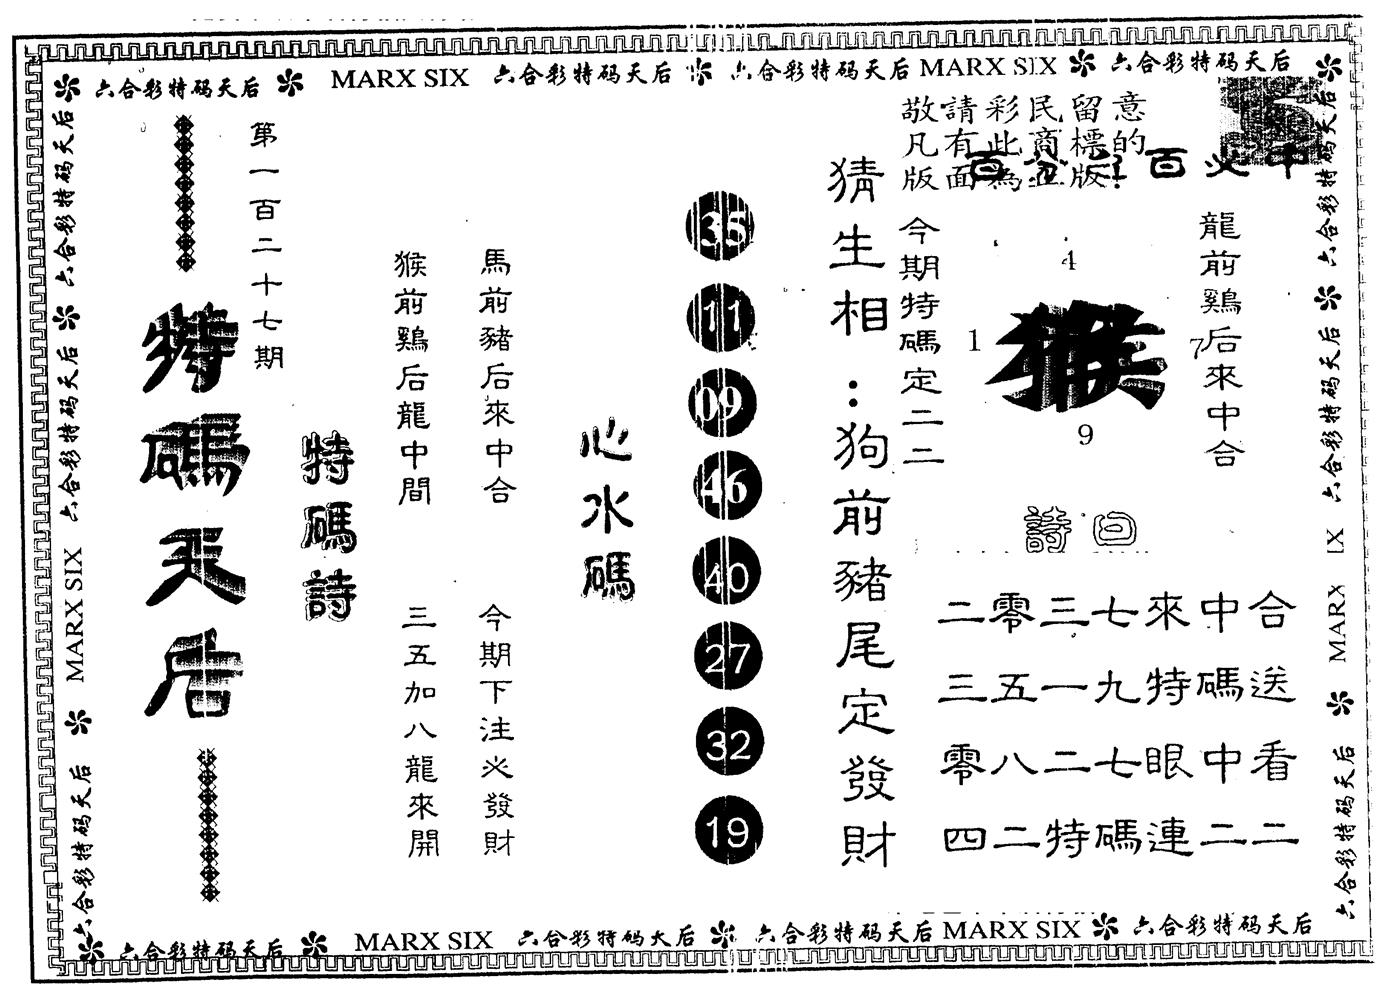 六合彩特码天后 MARX SIX 六合彩特码天后 六合彩特码天后 MARX SIX 六合彩特码天后
敬請彩民留意
凡有此商標的
版面為正版!
百分之百必中
龍前鷄后來中合
4
1
猴
7
9
今期特碼定二二
詩曰
二零三七來中合
三五一九特碼送
零八二七眼中看
四二特碼連二二
猜生相:狗前豬尾定發財
35
11
09
46
40
27
32
19
心水碼
馬前豬后來中合
今期下注必發財
猴前鷄后龍中間
三五加八龍來開
特碼詩
第一百二十七期
特碼天后
六合彩特码天后
六合彩特码天后
MARX SIX
六合彩特码天后
六合彩特码天后
六合彩特码天后
MARX IX
六合彩特码天后
六合彩特码天后 MARX SIX 六合彩特码天后 六合彩特码天后 MARX SIX 六合彩特码天后